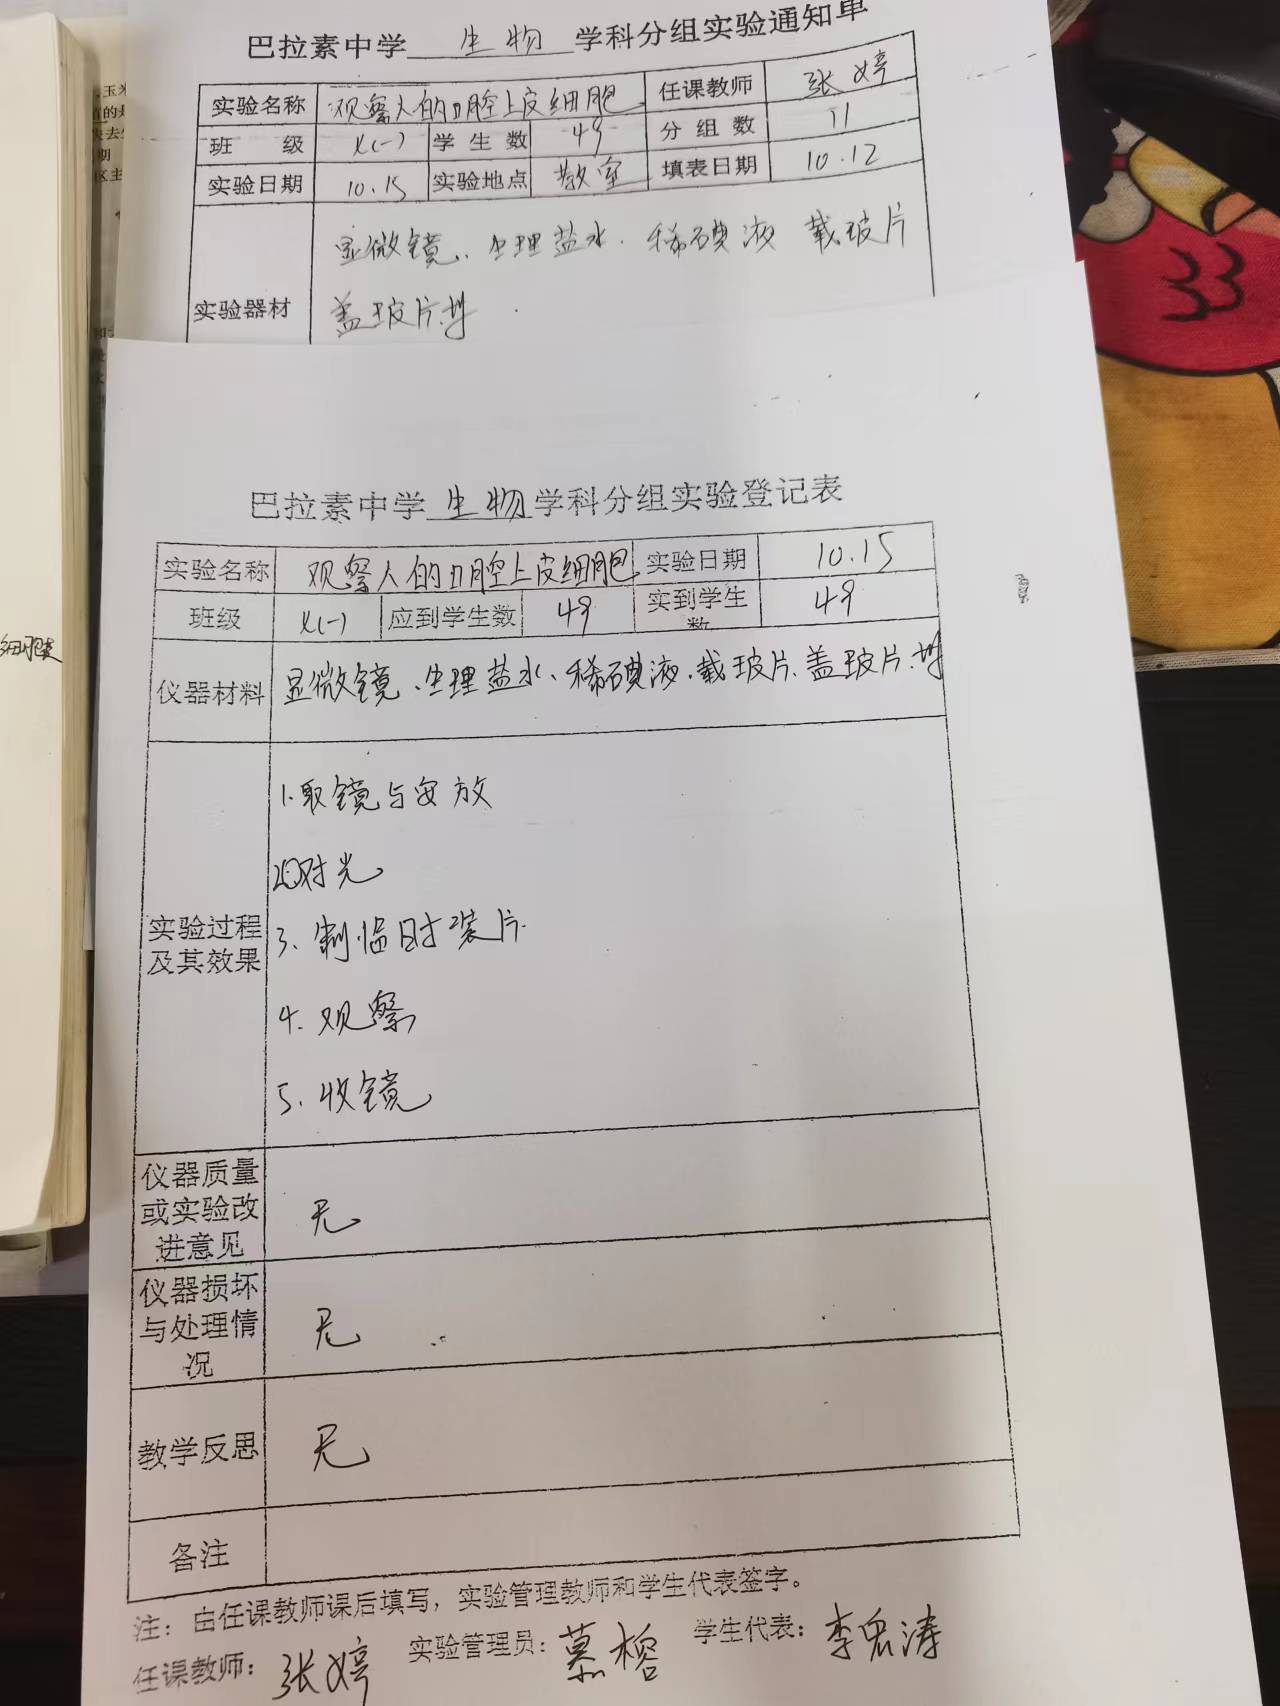 巴拉素中学 生物 学科分组实验通知单
实验名称 观察人的口腔上皮细胞 任课教师 张婷
班 级 七(一) 学生数 49 分组数 11
实验日期 10.15 实验地点 教室 填表日期 10.12
显微镜、生理盐水、稀碘液 载玻片
实验器材 盖玻片.等
巴拉素中学 生物 学科分组实验登记表
实验名称 观察人的口腔上皮细胞 实验日期 10.15
班级 七(一) 应到学生数 49 实到学生数 49
仪器材料 显微镜、生理盐水、稀碘液、载玻片、盖玻片.等
1.取镜与安放
2.对光
实验过程及其效果 3、制临时装片.
4. 观察
5、收镜
仪器质量
或实验改 无
进意见
仪器损坏
与处理情 无
况
教学反思 无
备注
注：由任课教师课后填写，实验管理教师和学生代表签字。
任课教师：张婷 实验管理员：慕榕 学生代表：李宏涛
细胞